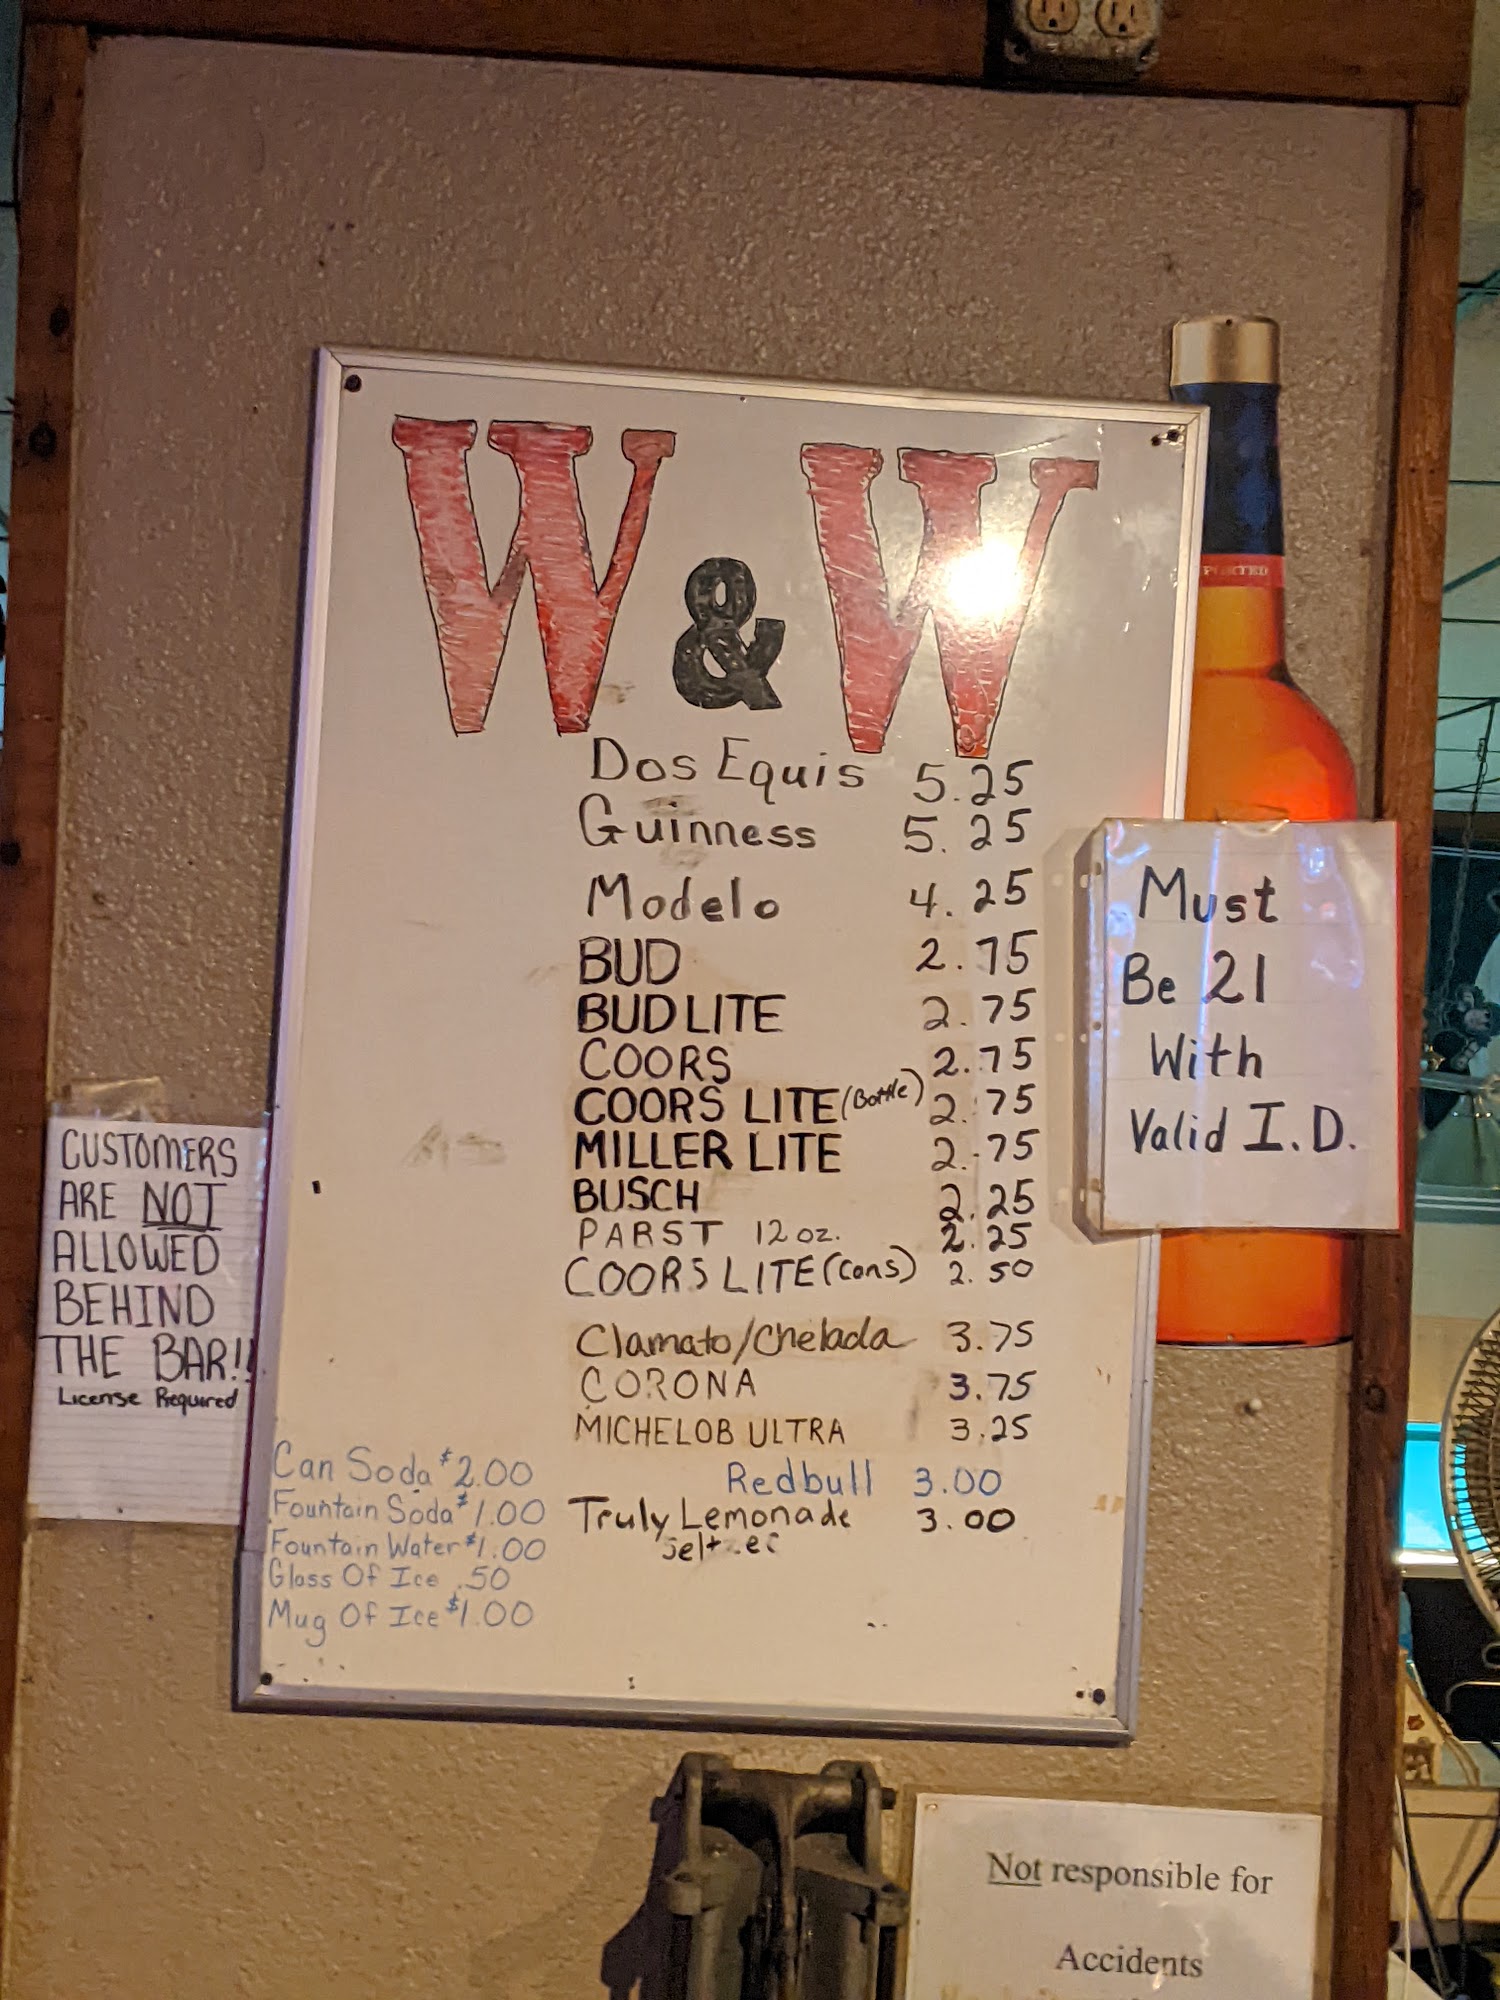 W & W
Dos Equis 5.25
Guinness 5.25
Modelo 4.25
BUD 2.75
BUD LITE 2.75
COORS 2.75
COORS LITE (Bottle) 2.75
MILLER LITE 2.75
BUSCH 2.25
PABST 12 oz. 2.25
COORS LITE (Cans) 2.50
Clamato/Chelada 3.75
CORONA 3.75
MICHELOB ULTRA 3.25
Redbull 3.00
Truly Lemonade 3.00
Can Soda $2.00
Fountain Soda $1.00
Fountain Water $1.00
Glass Of Ice .50
Mug Of Ice $1.00
CUSTOMERS
ARE NOT
ALLOWED
BEHIND
THE BAR!!
License Required
Must
Be 21
With
Valid I.D.
Not responsible for
Accidents